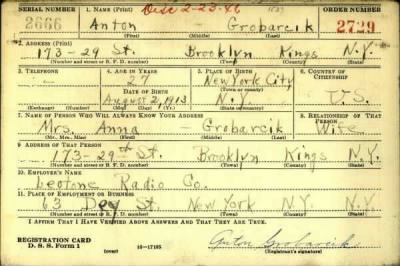 SERIAL NUMBER 1. NAME (Print) Disc 2-23-46 ORDER NUMBER
2666 Anton Grobarcik 2729
(First) (Middle) (Last)
2. ADDRESS (Print)
173-29 St. Brooklyn Kings N.Y.
(Number and street or R. F. D. number) (Town) (County) (State)
3. TELEPHONE 4. AGE IN YEARS 5. PLACE OF BIRTH 6. COUNTRY OF CITIZENSHIP
- 27 New York City
DATE OF BIRTH (Town or county)
August 2, 1913 N.Y. U.S.
(Exchange) (Number) (Mo.) (Day) (Yr.) (State or country)
7. NAME OF PERSON WHO WILL ALWAYS KNOW YOUR ADDRESS 8. RELATIONSHIP OF THAT PERSON
Mrs. Anna - Grobarcik Wife
(Mr., Mrs., Miss) (First) (Middle) (Last)
9. ADDRESS OF THAT PERSON
173-29th St. Brooklyn Kings N.Y.
(Number and street or R. F. D. number) (Town) (County) (State)
10. EMPLOYER'S NAME
Leotone Radio Co.
11. PLACE OF EMPLOYMENT OR BUSINESS
63 Dey St. New York N.Y. N.Y.
(Number and street or R. F. D. number) (Town) (County) (State)
I AFFIRM THAT I HAVE VERIFIED ABOVE ANSWERS AND THAT THEY ARE TRUE.
REGISTRATION CARD
D. S. S. Form 1 16-17105 Anton Grobarcik
(Registrant's signature)